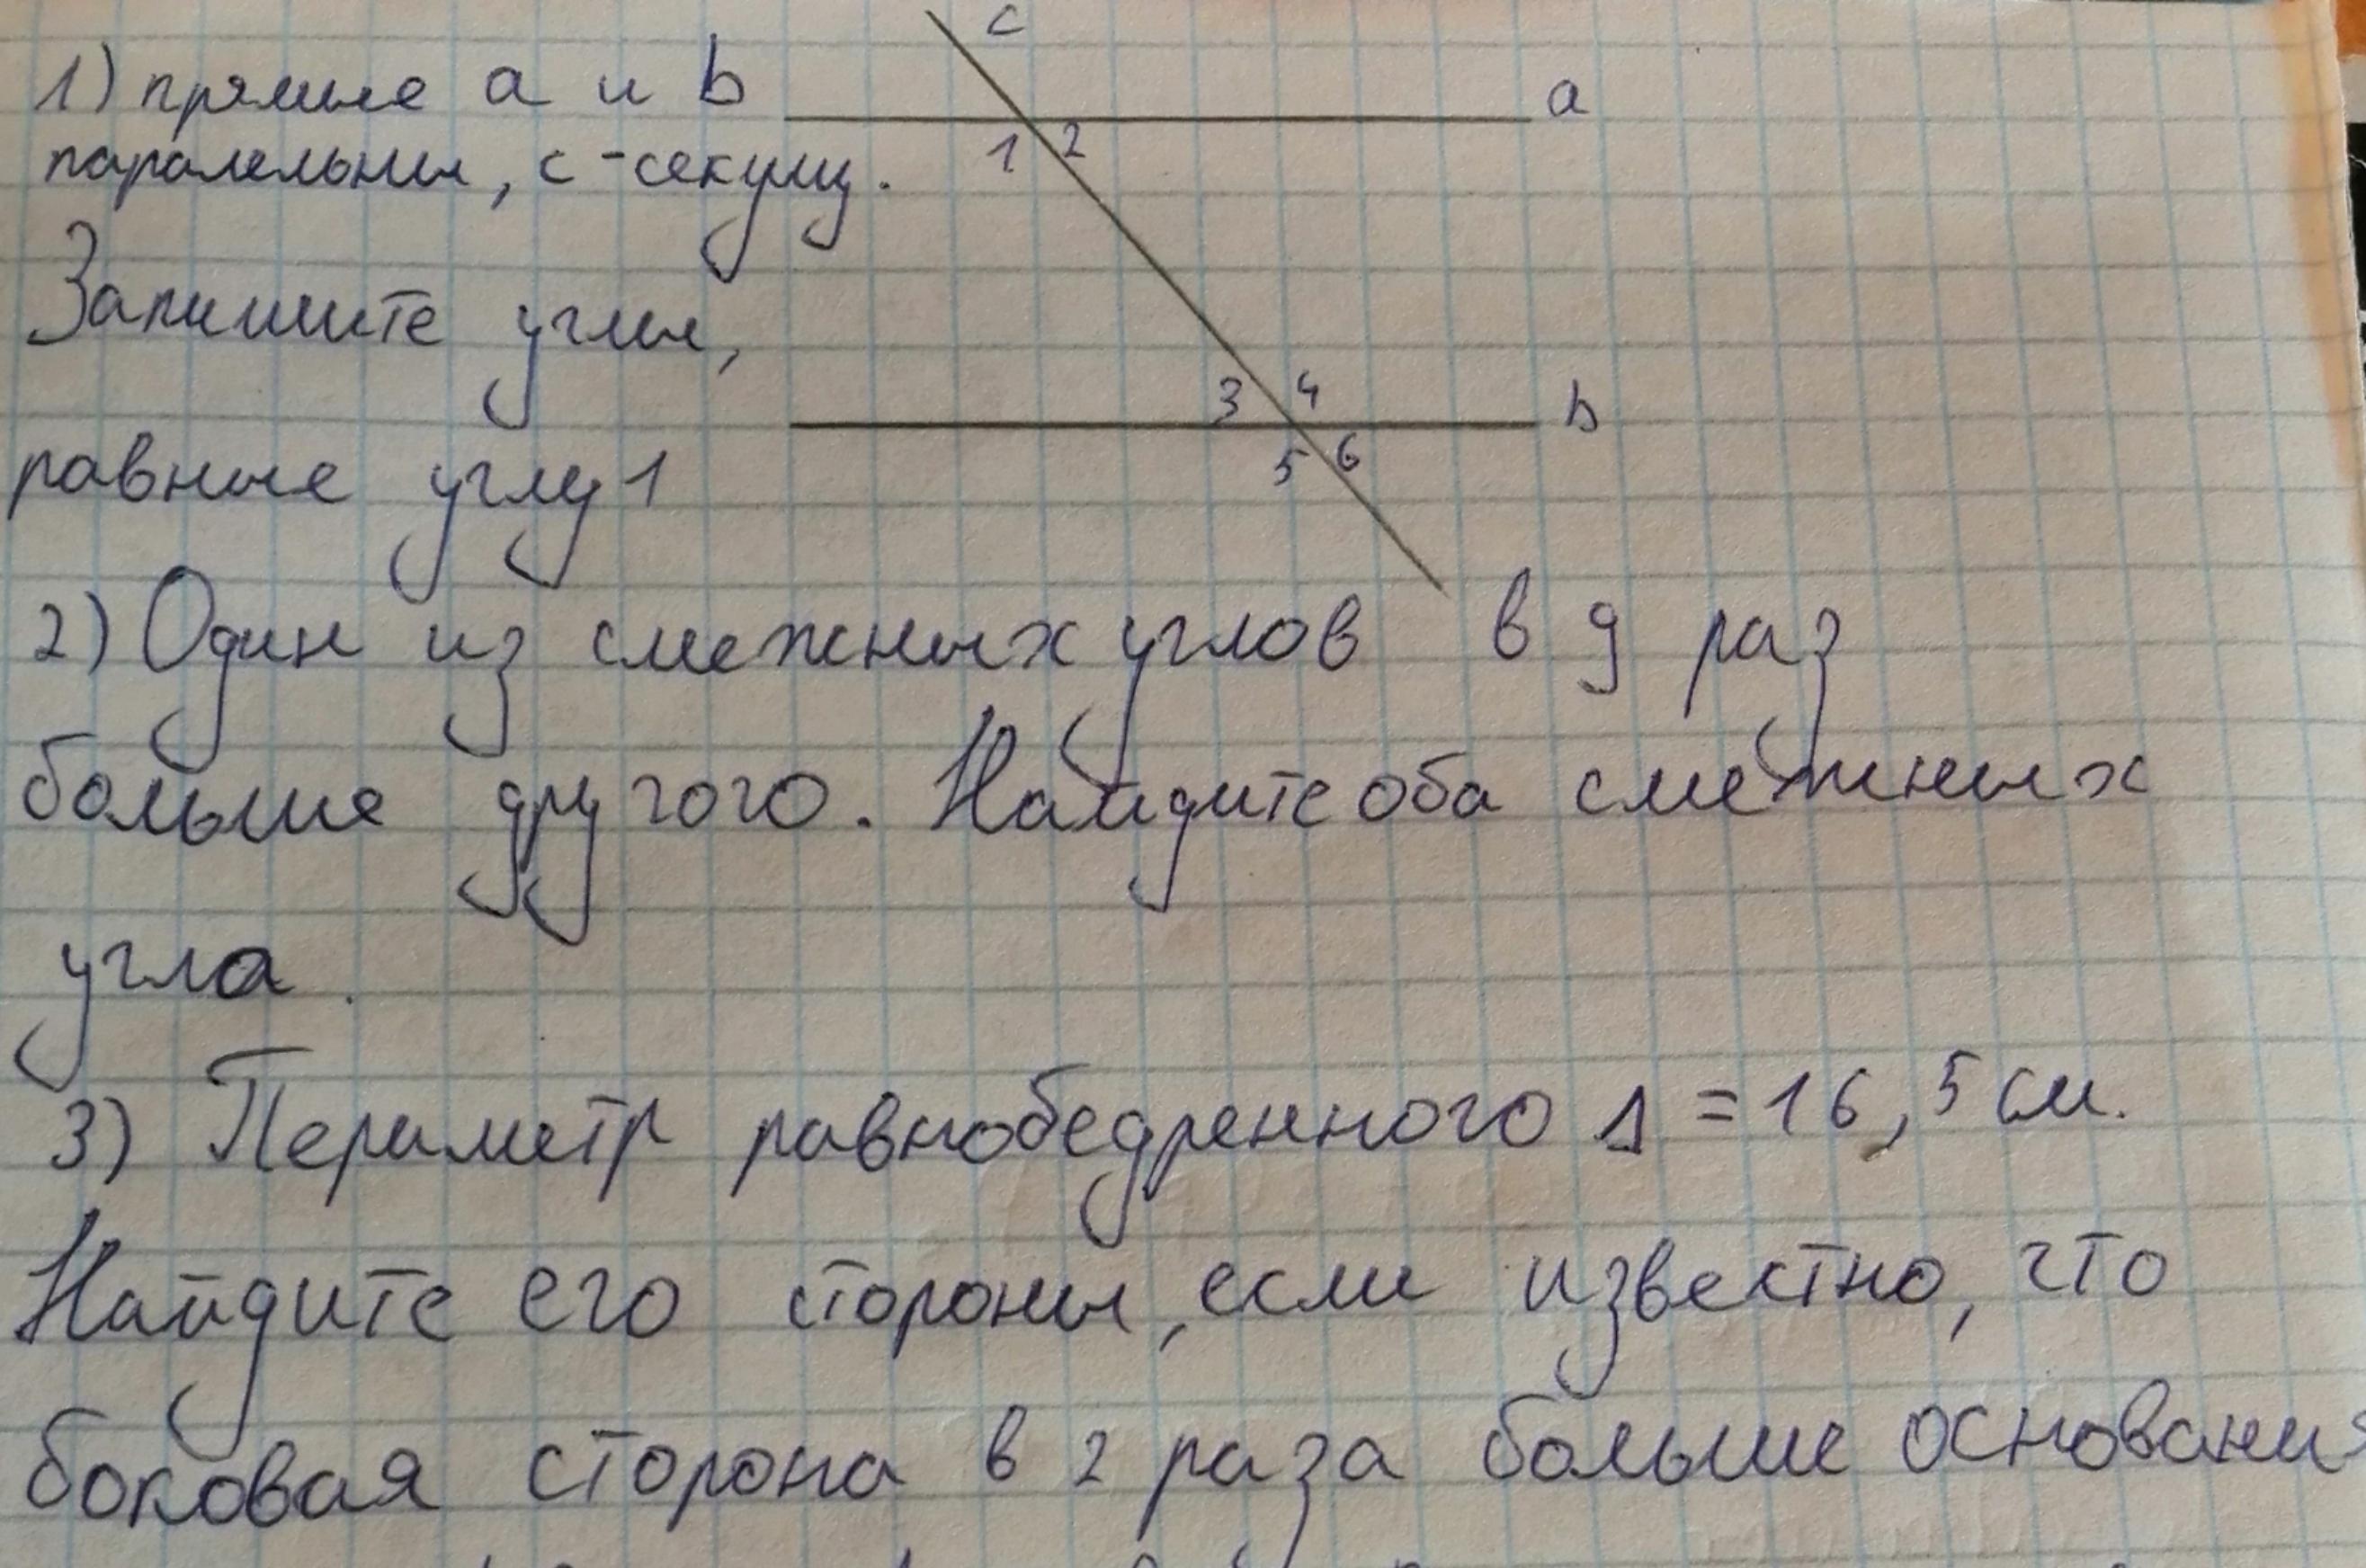 c
1) прямые a и b
a
паралельны, c-секущ.
1 2
Запишите углы,
3 4
b
равные углу 1
5 6
2) Один из смежных углов в 9 раз
больше другого. Найдите оба смежных
угла.
3) Периметр равнобедренного Δ = 16,5 см.
Найдите его стороны, если известно, что
боковая сторона в 2 раза больше основания